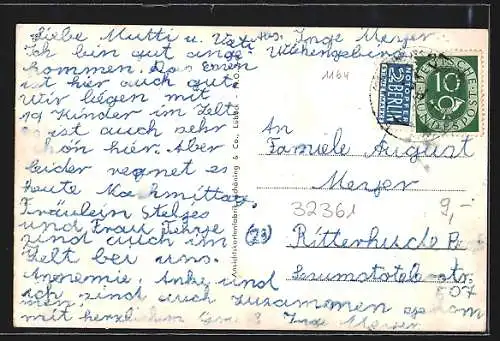 Liebe Mutti u. Vati
Ich bin gut ange
kommen. Das Essen
ist hier auch gut
wir liegen mit
19 Kinder im Zelt
es ist auch sehr
schön hier. Aber
leider regnet es
heute Nachmittag.
Fräulein
und Frau
sind auch im
Zelt bei uns.
Annemie, Anke und
ich sind auch zusammen
mit herzlichen Inge Meyer
Abs. Inge Meyer
1164
An
Familie August
Meyer
32361
9,-
(23) Ritterhude B
str.
507
Ansichtskartenfabrik Schöning & Co., Lübeck
NOTOPFER
2 BERLIN
STEUERMARKE
DEUTSCHE
BUNDESPOST
10